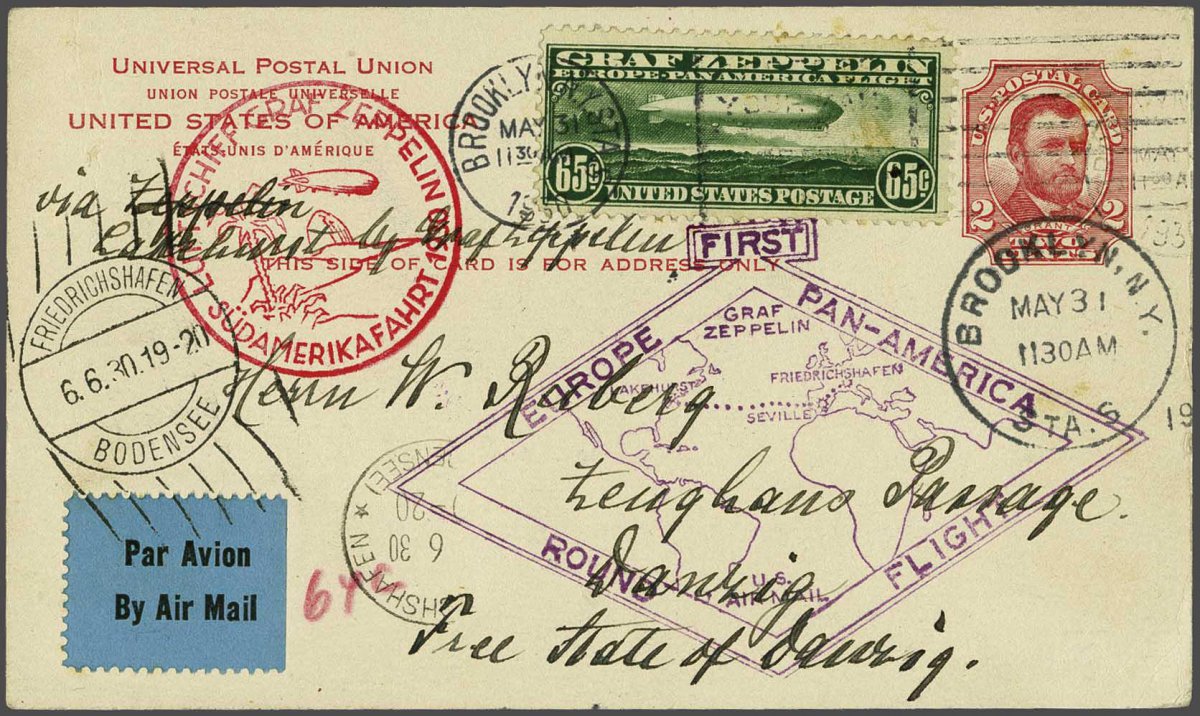 UNIVERSAL POSTAL UNION
UNION POSTALE UNIVERSELLE
UNITED STATES OF AMERICA
ÉTATS-UNIS D'AMÉRIQUE
THIS SIDE OF CARD IS FOR ADDRESS ONLY
LUFTSCHIFF GRAF ZEPPELIN
SÜDAMERIKAFAHRT 1930
BROOKLYN, N.Y. STA.
MAY 31
1130 AM
1930
GRAF ZEPPELIN
EUROPE-PAN AMERICA FLIGHT
65¢ 65¢
UNITED STATES POSTAGE
U.S. POSTAL CARD
2 2
GRANT
TWO
MAY
1130 AM
193
via Zeppelin
Lakehurst by Graf Zeppelin
FIRST
EUROPE
PAN-AMERICA
ROUND
FLIGHT
GRAF
ZEPPELIN
LAKEHURST
FRIEDRICHSHAFEN
SEVILLE
U.S.
AIR MAIL
BROOKLYN, N.Y.
MAY 31
1130 AM
STA. 6
19
FRIEDRICHSHAFEN
6.6.30.19-20
BODENSEE
Herrn W.
Zeughaus Passage.
Danzig
Free State of Danzig.
HSHAFEN *
6 30
-20
DENSEE)
Par Avion
By Air Mail